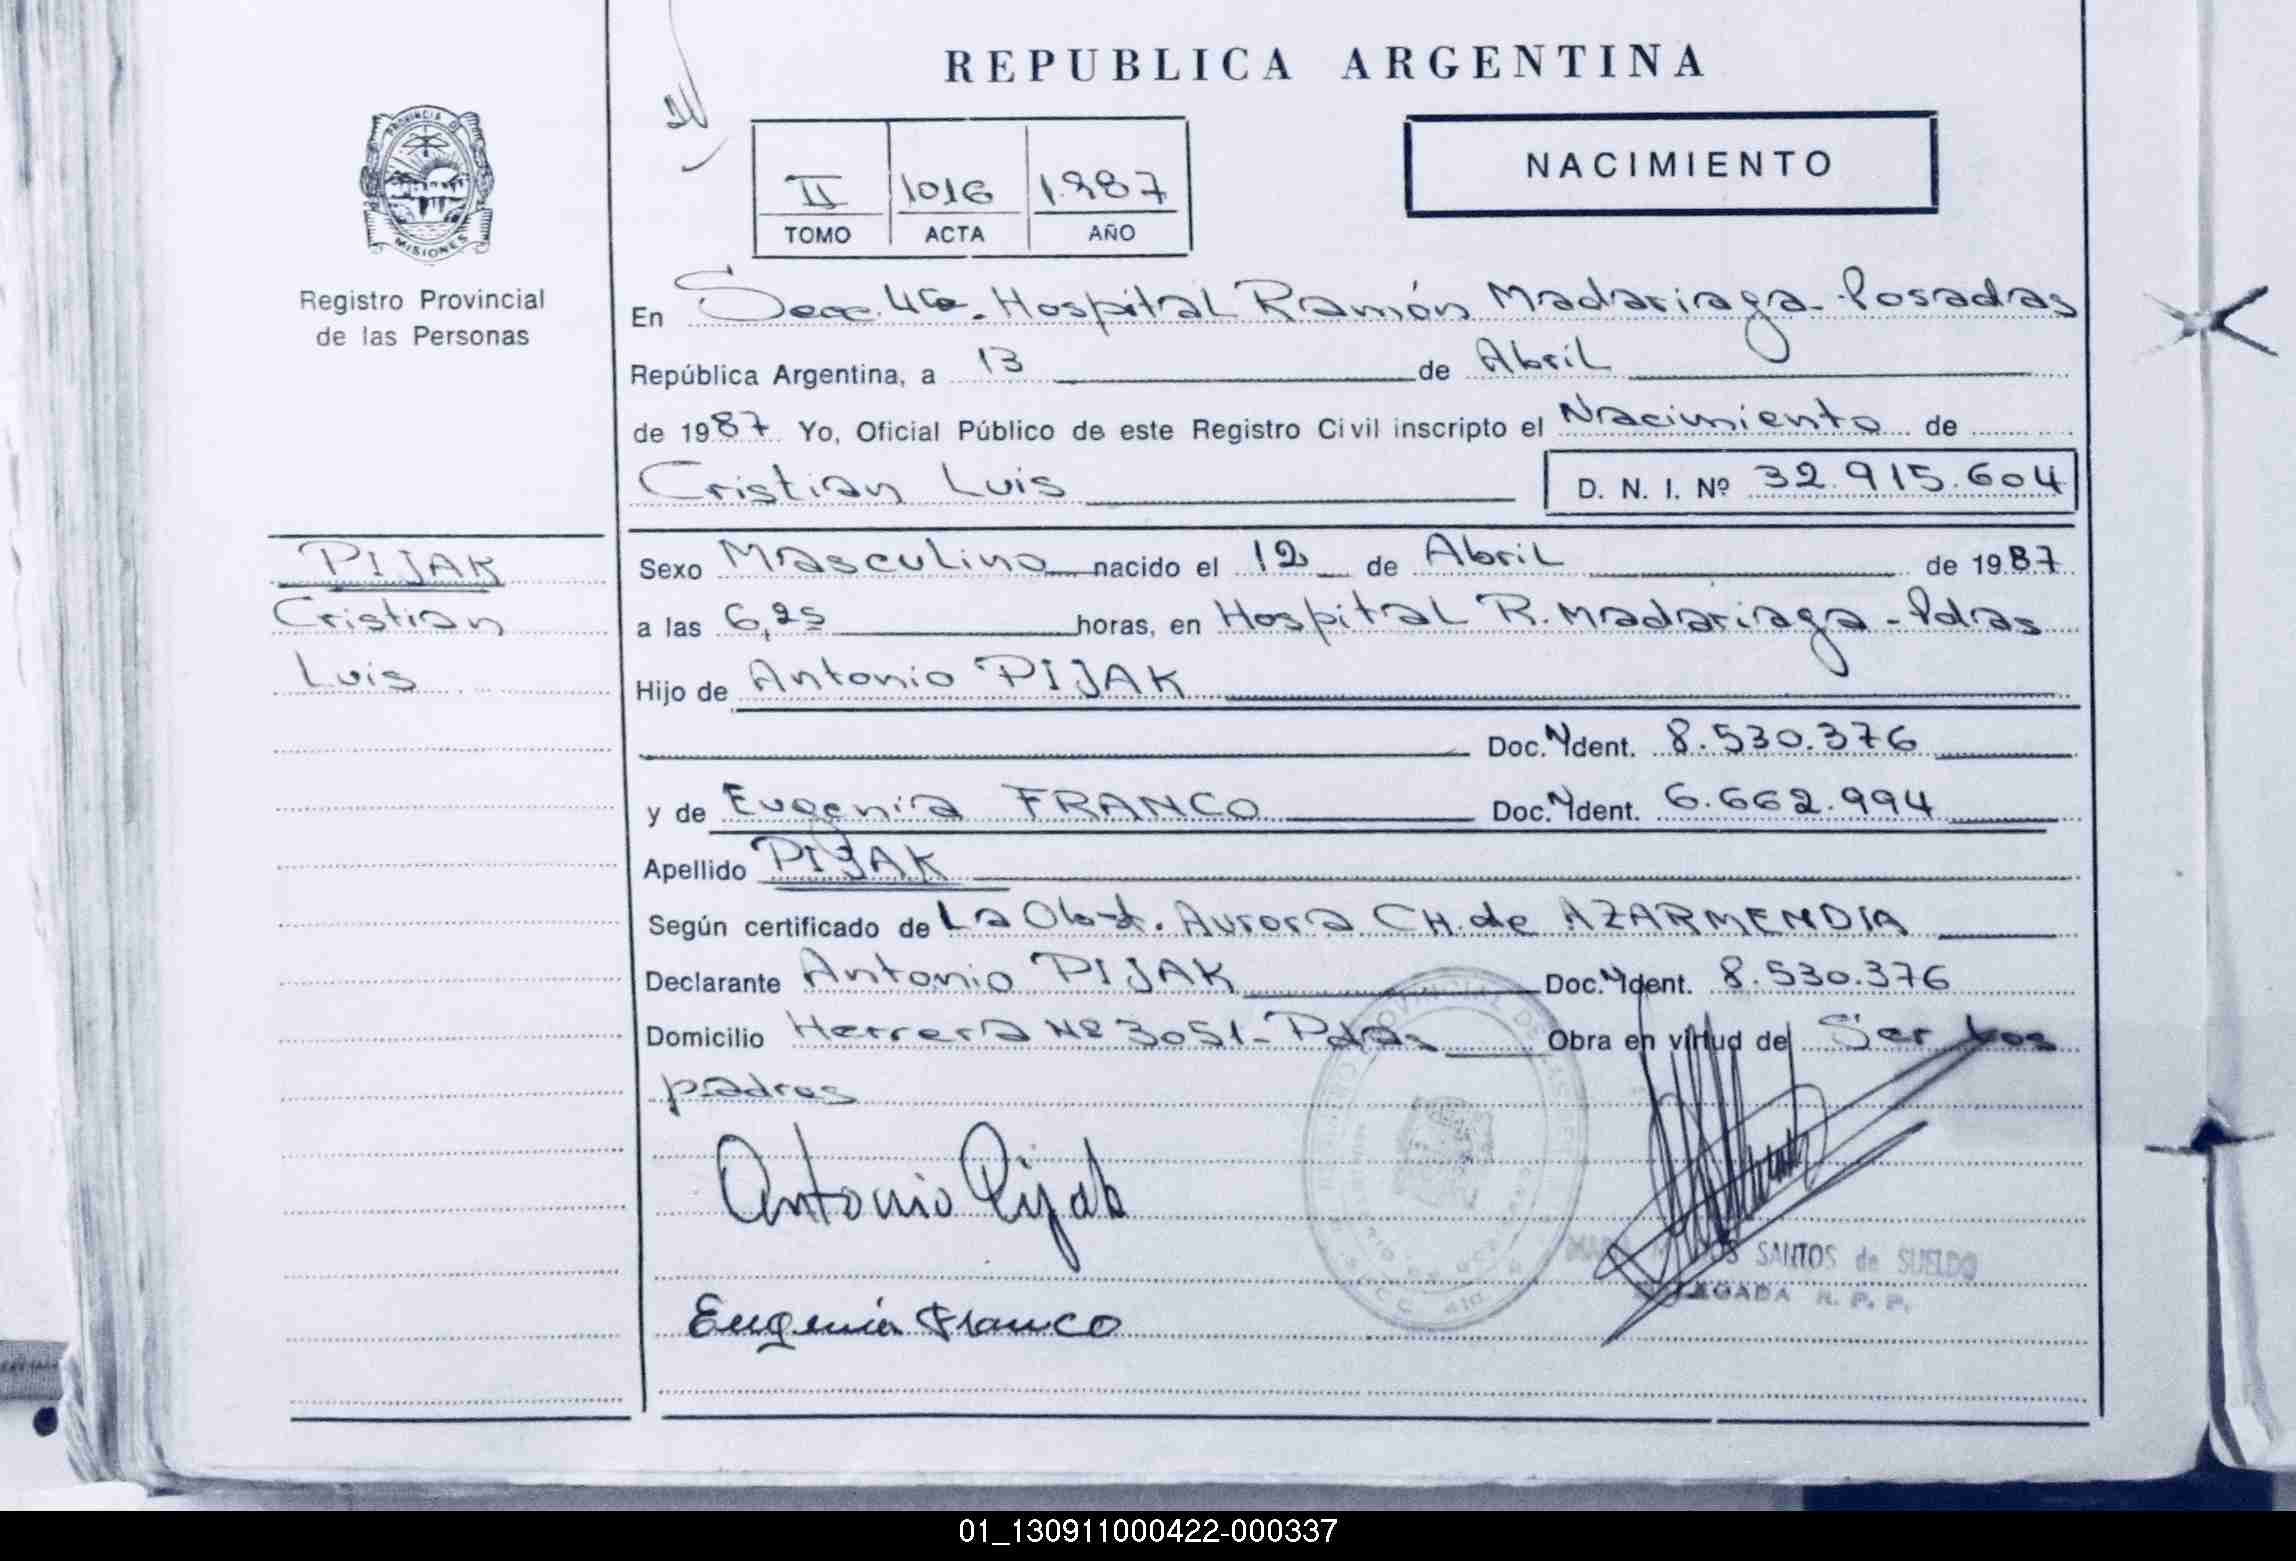 REPUBLICA ARGENTINA
PROVINCIA DE
MISIONES
Registro Provincial
de las Personas
II 1016 1.987
TOMO ACTA AÑO
NACIMIENTO
En Secc. 4ta. Hospital Ramón Madariaga - Posadas
República Argentina, a 13 de Abril
de 1987 Yo, Oficial Público de este Registro Civil inscripto el Nacimiento de
Cristian Luis D. N. I. Nº 32.915.604
PIJAK
Cristian
Luis
Sexo Masculino nacido el 12 de Abril de 1987
a las 6,25 horas, en Hospital R. Madariaga - Pdas
Hijo de Antonio PIJAK
Doc. Ydent. 8.530.376
y de Eugenia FRANCO Doc. Ydent. 6.662.994
Apellido PIJAK
Según certificado de La Obst. Aurora CH. de AZARMENDIA
Declarante Antonio PIJAK Doc. Ydent. 8.530.376
Domicilio Herrera Nº 3051 - Pdas Obra en virtud de Ser los
padres
Antonio Pijak
SANTOS de SUELDO
R. P. P.
Eugenia Franco
01_130911000422-000337